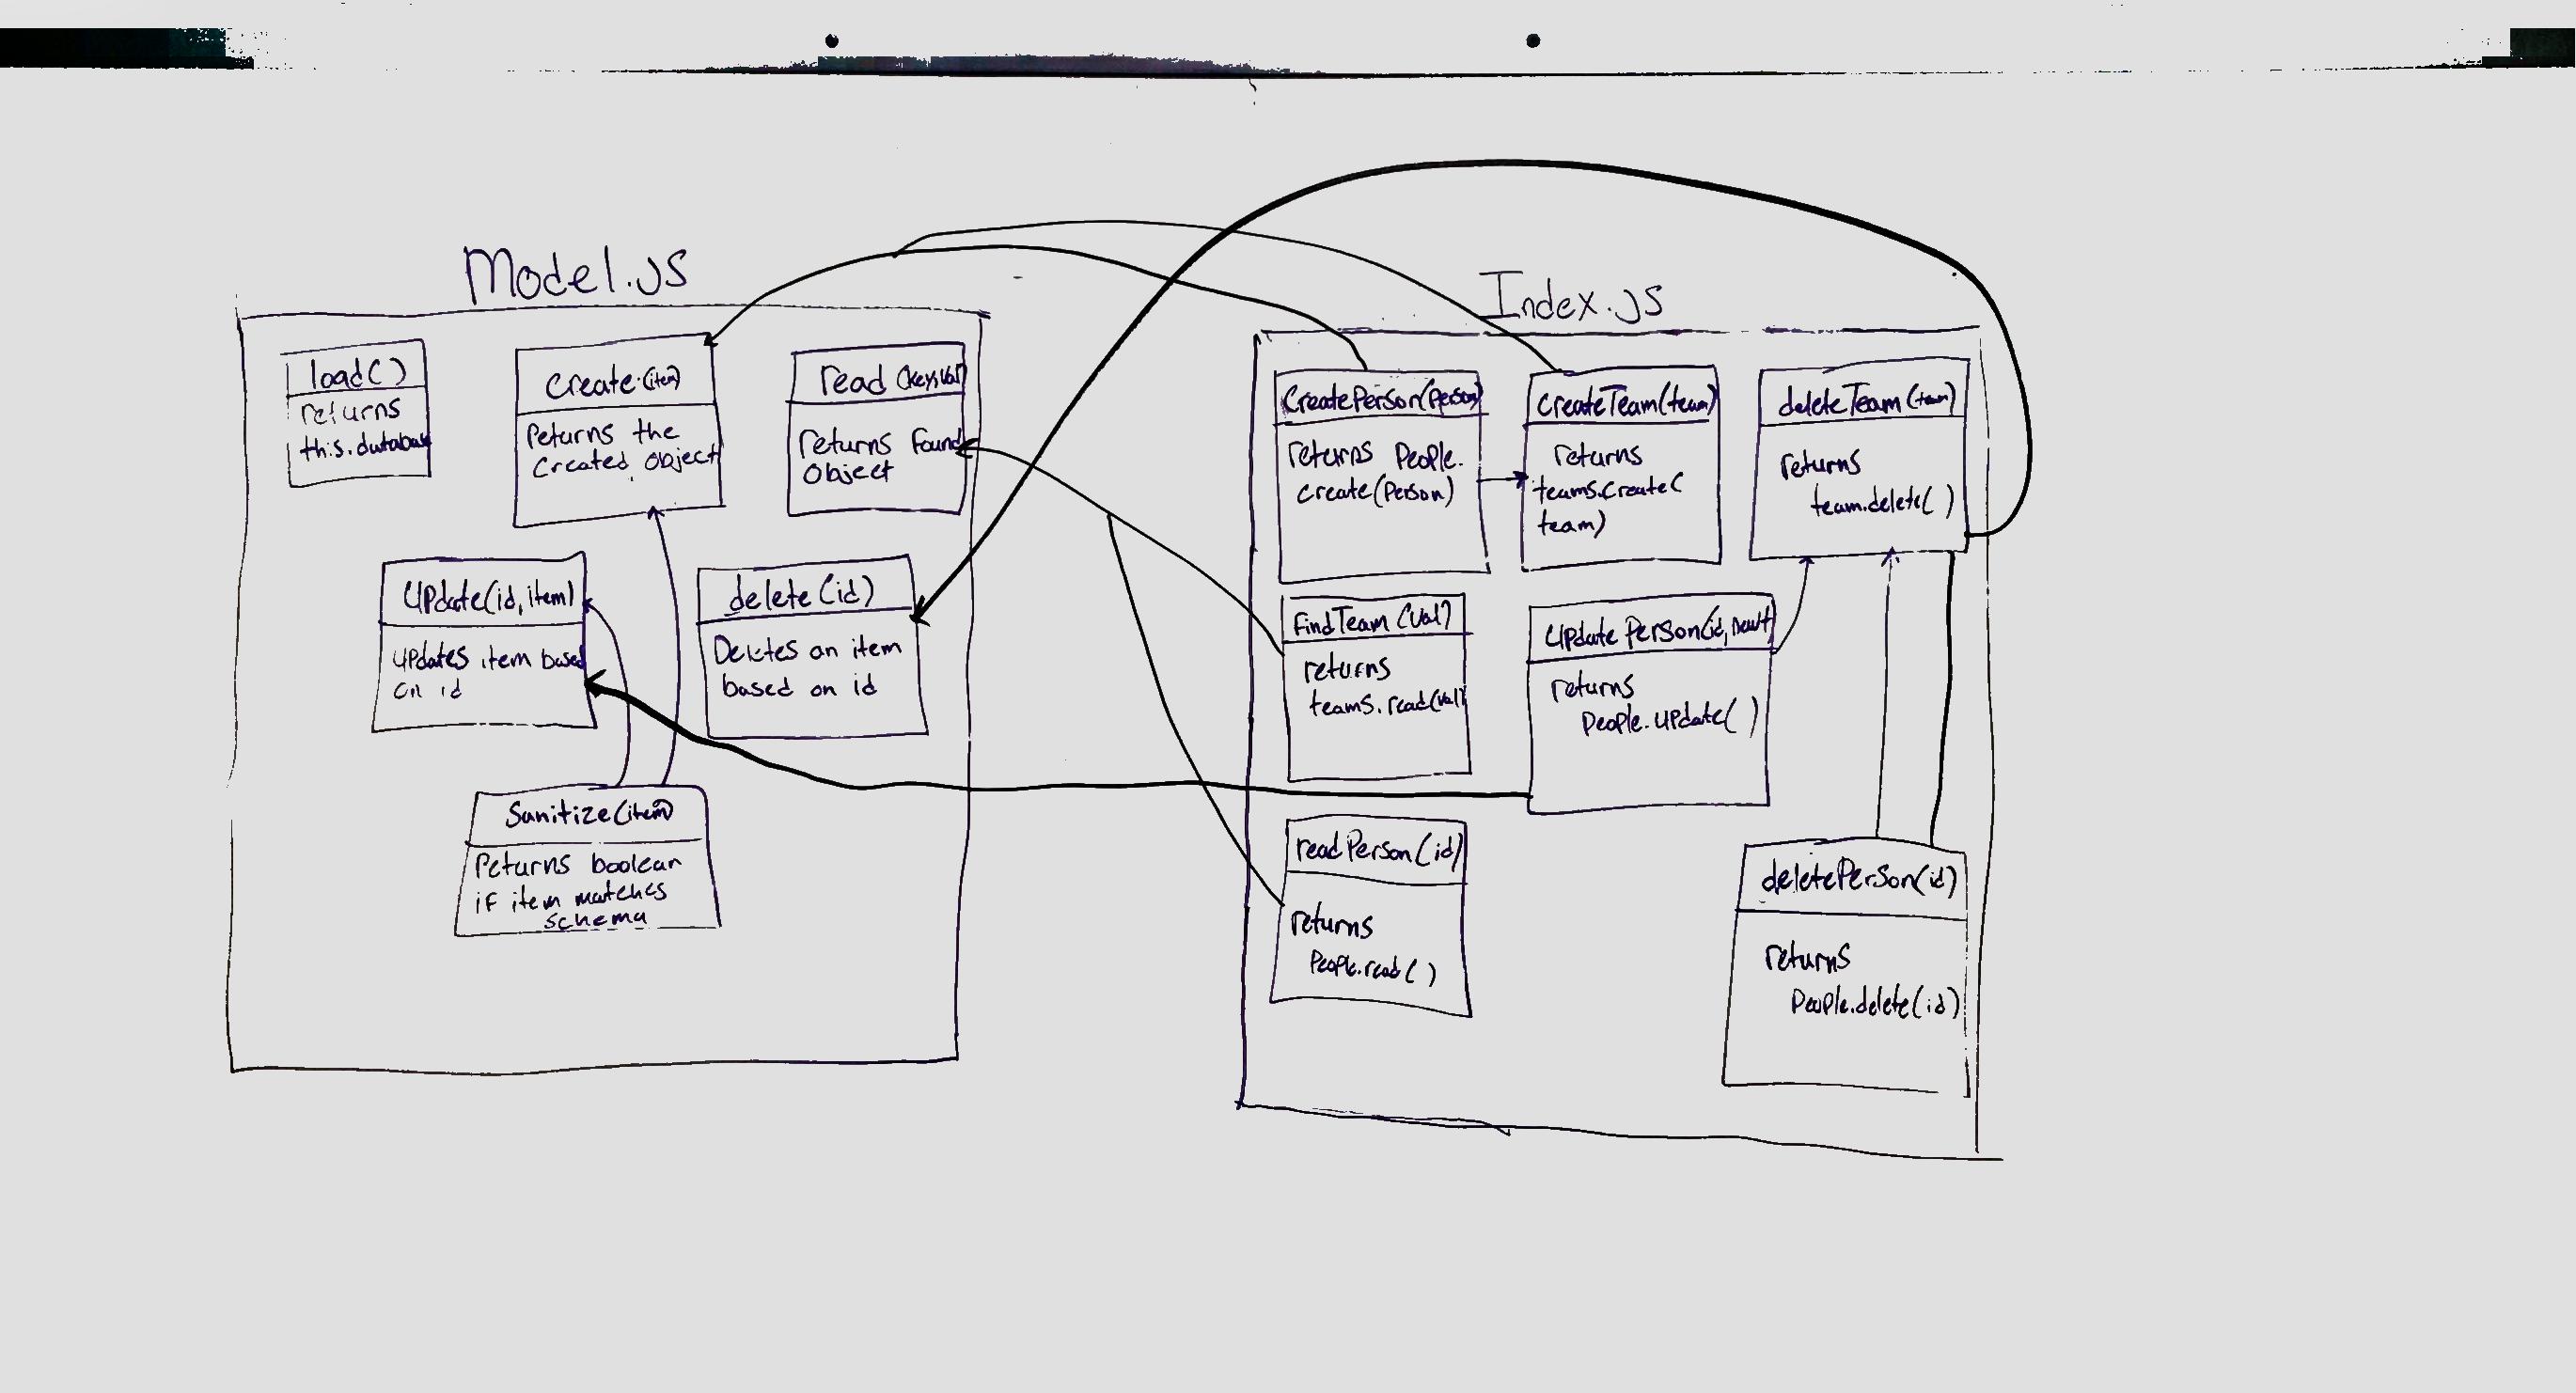 Model.JS
load()
returns
this.database
create(item)
returns the
created object
read (key,val)
returns found
object
Update(id, item)
updates item based
on id
delete(id)
Deletes an item
based on id
Sanitize(item)
returns boolean
if item matches
schema
Index.JS
CreatePerson(Person)
returns People.
create(Person)
createTeam(team)
returns
teams.create(
team)
deleteTeam(team)
returns
team.delete( )
findTeam (val)
returns
teams.read(val)
Update Person(id,
returns
People.update( )
readPerson(id)
returns
People.read( )
deletePerson(id)
returns
People.delete(id)